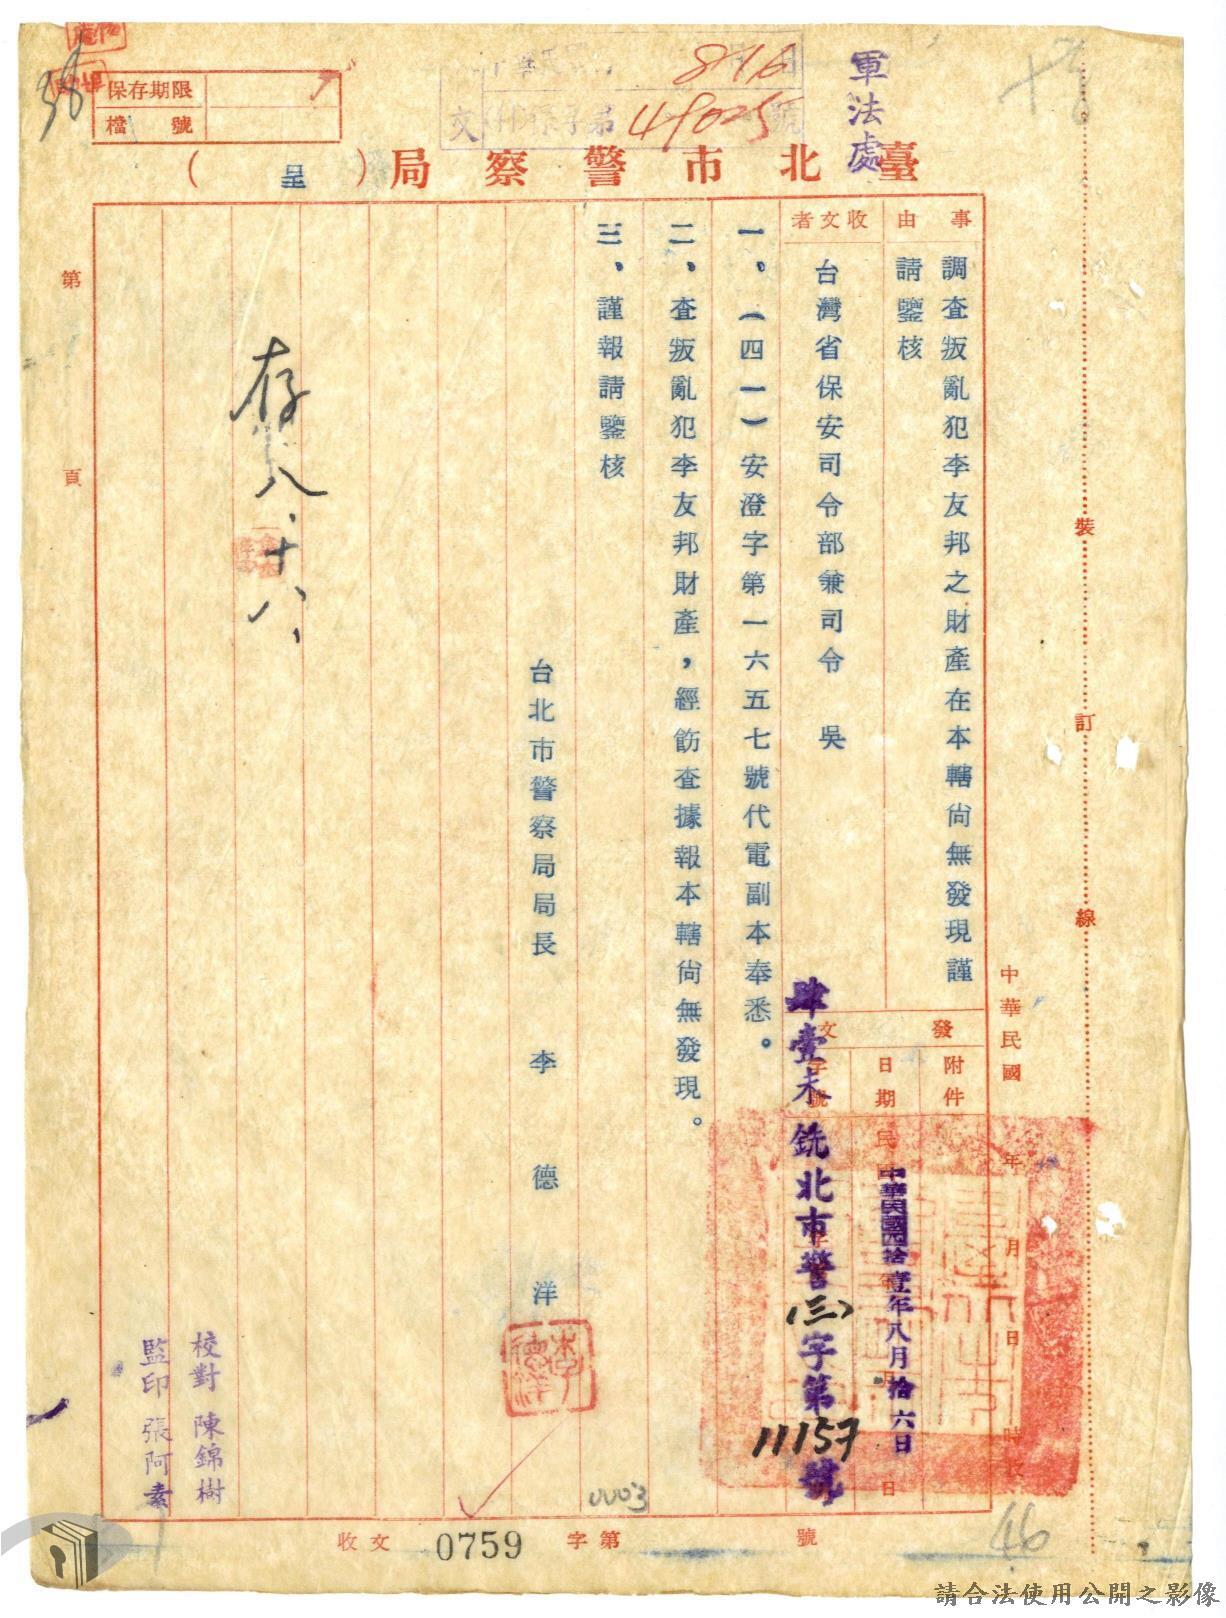 軍法處
816
49025
保存期限
檔號
臺北市警察局(呈)
事由
調查叛亂犯李友邦之財產在本轄尚無發現謹
請鑒核
收文者
台灣省保安司令部兼司令 吳
發文
附件
日期
中華民國肆拾壹年八月拾六日
字號
肆壹未銑北市警(三)字第11157號
一、(四一)安澄字第一六五七號代電副本奉悉。
二、查叛亂犯李友邦財產,經飭查據報本轄尚無發現。
三、謹報請鑒核
台北市警察局局長 李德洋
李德洋
存八、十八、
校對 陳錦樹
監印 張阿素
第頁
裝訂線
中華民國 年 月 日 時
收文 0759 字第 號
0003
46
請合法使用公開之影像